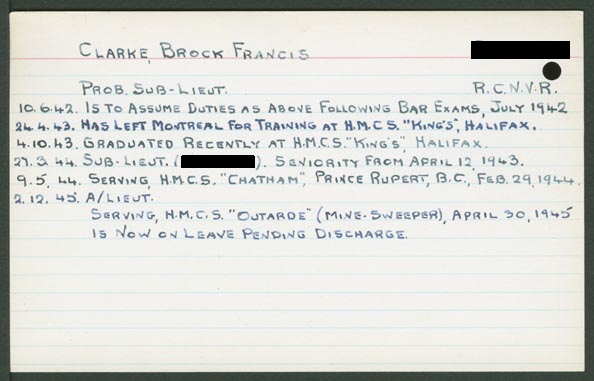 CLARKE, BROCK FRANCIS
PROB. SUB-LIEUT. R.C.N.V.R.
10.6.42. IS TO ASSUME DUTIES AS ABOVE FOLLOWING BAR EXAMS, JULY 1942
24.4.43. HAS LEFT MONTREAL FOR TRAINING AT H.M.C.S. "KING'S", HALIFAX.
4.10.43. GRADUATED RECENTLY AT H.M.C.S. "KING'S", HALIFAX.
27.3.44. SUB-LIEUT. ( ). SENIORITY FROM APRIL 12, 1943.
9.5.44. SERVING, H.M.C.S. "CHATHAM", PRINCE RUPERT, B.C., FEB. 29, 1944.
2.12.45. A/LIEUT.
SERVING, H.M.C.S. "OUTARDE" (MINE-SWEEPER), APRIL 30, 1945
IS NOW ON LEAVE PENDING DISCHARGE.